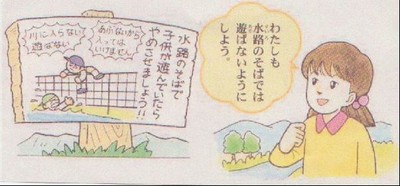 水路のそばで
子供が遊んでいたら
やめさせましょう!!
あぶないから
入っては
いけません
川に入らない
遊ばない
わたしも
水路のそばでは
遊ばないように
しよう。